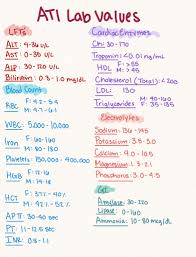 ATI Lab Values
LFTs
ALT: 4-36 U/L
AST: 0-35 U/L
ALP: 30-120
Bilirubin: 0.3-1.0 mg/dL
Blood Work
RBC F: 4.2-5.4
M: 4.7-6.1
WBC: 5,000-10,000
Iron F: 60-160
M: 80-180
Platelets: 150,000-400,000
HGB F: 12-16
M: 14-18
HCT F: 37-47%
M: 42-52%
APTT: 30-40 sec
PT: 11-12.5 sec
INR: 0.8-1.1
Cardiac Enzymes
CK: 30-170
Troponin: <0.01 ng/mL
HDL F: >55
M: >45
Cholesterol (Total): <200
LDL: 130
Triglycerides F: 35-135
M: 40-160
Electrolytes
Sodium: 136-145
Potassium: 3.5-5.0
Calcium: 9.0-10.5
Magnesium:
Phosphorus: 3.0-4.5
GI
Amylase: 30-220
Lipase: 0-160
Ammonia: 10-80 mcg/dL